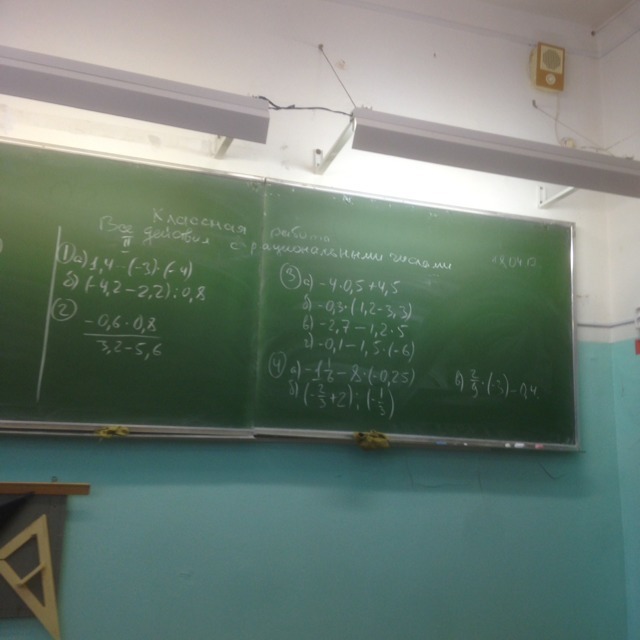 Классная работа
Все действия с рациональными числами
II
① а) 1,4-(-3)·(-4)
б) (-4,2-2,2):0,8
②
-0,6·0,8
3,2-5,6
③ а) -4·0,5+4,5
б) -0,3·(1,2-3,3)
в) -2,7-1,2:5
г) -0,1-1,5·(-6)
④ а) -1 1/6 - 8·(-0,25)
б) (-2/3+2):(-1/3)